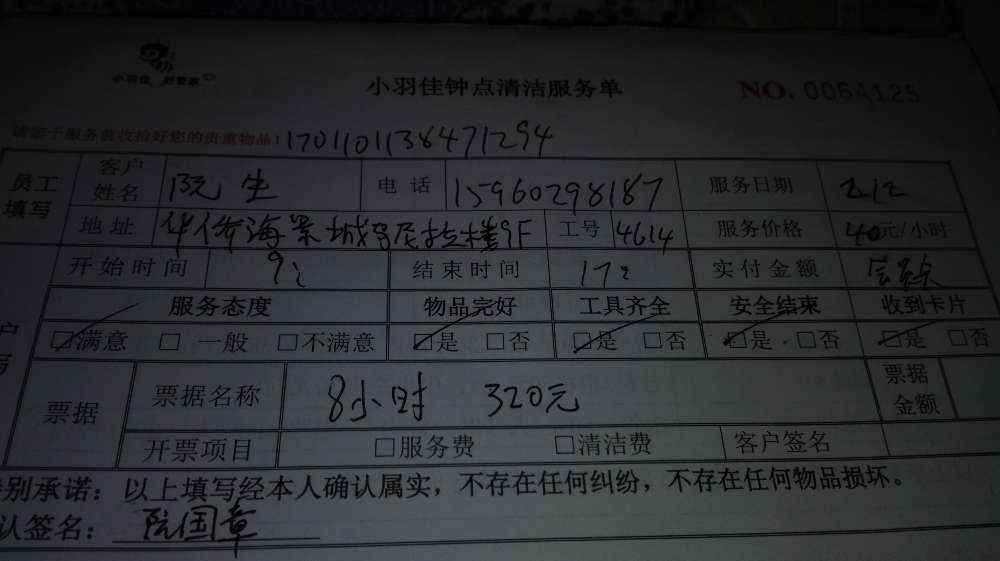 小羽佳 好管家
小羽佳钟点清洁服务单 NO. 0064125
请您于服务前收拾好您的贵重物品! 1701101138471294
员工填写 客户姓名 阮生 电话 15960298187 服务日期 2/2
地址 华侨海景城马尼拉楼9F 工号 4614 服务价格 40元/小时
开始时间 9: 结束时间 17: 实付金额
服务态度 物品完好 工具齐全 安全结束 收到卡片
☑满意 □一般 □不满意 ☑是 □否 ☑是 □否 ☑是 □否 ☑是 □否
票据 票据名称 8小时 320元 票据金额
开票项目 □服务费 □清洁费 客户签名
别承诺：以上填写经本人确认属实，不存在任何纠纷，不存在任何物品损坏。
认签名：阮国章